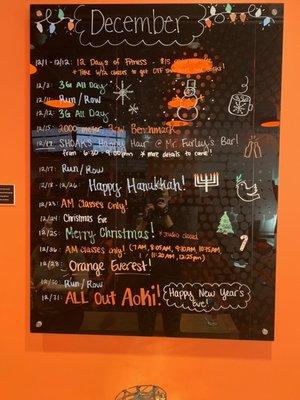 December
12/1 - 12/12: 12 Days of Fitness - $15
* Take 6/12 classes to get OTF
12/2: 3G All Day
12/11: Run/Row
12/12: 3G All Day
12/15: 2000 meter Row Benchmark
12/17: SHOAKS Happy Hair @ Mr. Furley's Bar!
from 6:30 - 9:00pm * more details to come!
12/17: Run/Row
12/18 - 12/26: Happy Hanukkah!
12/23: AM Classes Only!
12/24: Christmas Eve
12/25: Merry Christmas! * studio closed
12/26: AM classes only! (7 AM, 8:05AM, 9:10AM, 10:15AM
11:20AM, 12:25pm)
12/28: Orange Everest!
12/30: Run/Row
12/31: ALL Out Aoki!
Happy New Year's
Eve!